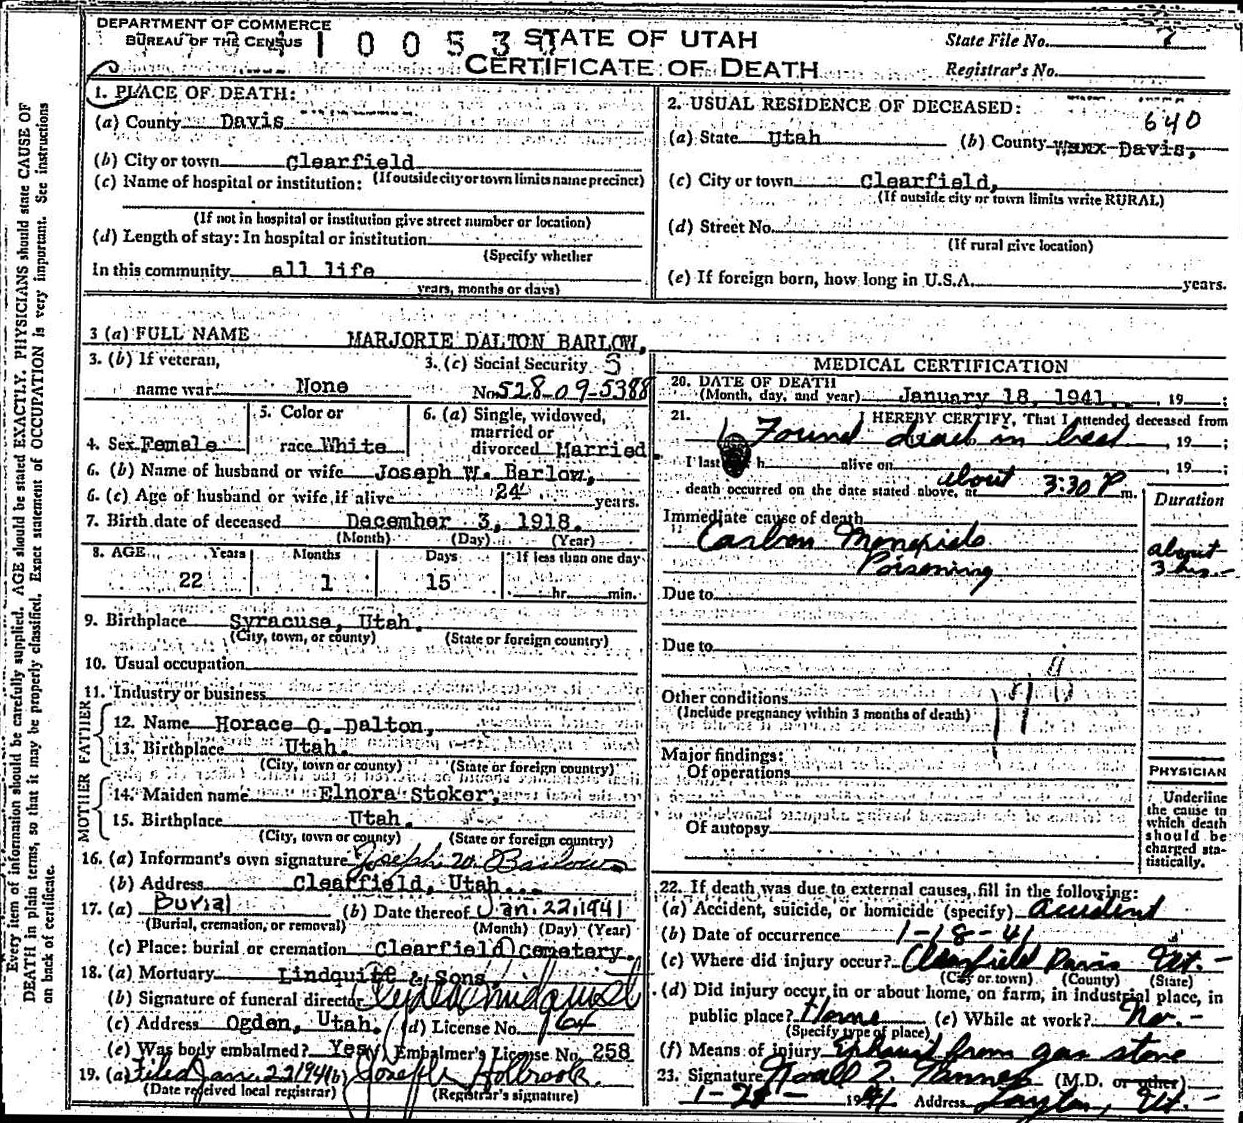 DEPARTMENT OF COMMERCE
BUREAU OF THE CENSUS
1 0 0 5 3
STATE OF UTAH
CERTIFICATE OF DEATH
State File No. 7
Registrar's No.
Every item of information should be carefully supplied. AGE should be stated EXACTLY. PHYSICIANS should state CAUSE OF
DEATH in plain terms, so that it may be properly classified. Exact statement of OCCUPATION is very important. See instructions
on back of certificate.
1. PLACE OF DEATH:
(a) County Davis
(b) City or town Clearfield
(If outside city or town limits name precinct)
(c) Name of hospital or institution:
(If not in hospital or institution give street number or location)
(d) Length of stay: In hospital or institution
(Specify whether
In this community all life
years, months or days)
2. USUAL RESIDENCE OF DECEASED:
640
(a) State Utah (b) County Davis,
(c) City or town Clearfield,
(If outside city or town limits write RURAL)
(d) Street No.
(If rural give location)
(e) If foreign born, how long in U.S.A. years.
3 (a) FULL NAME MARJORIE DALTON BARLOW,
3. (b) If veteran, name war None
3. (c) Social Security No. 528-09-5388
4. Sex Female
5. Color or race White
6. (a) Single, widowed, married or divorced Married.
6. (b) Name of husband or wife Joseph W. Barlow,
6. (c) Age of husband or wife, if alive 24 years.
7. Birth date of deceased December 3, 1918.
(Month) (Day) (Year)
8. AGE Years Months Days If less than one day
22 1 15 hr. min.
9. Birthplace Syracuse, Utah.
(City, town, or county) (State or foreign country)
10. Usual occupation
11. Industry or business
FATHER
12. Name Horace O. Dalton,
13. Birthplace Utah.
(City, town or county) (State or foreign country)
MOTHER
14. Maiden name Elnora Stoker,
15. Birthplace Utah.
(City, town or county) (State or foreign country)
16. (a) Informant's own signature Joseph W. Barlow
(b) Address Clearfield, Utah.
17. (a) Burial (b) Date thereof Jan. 22, 1941
(Burial, cremation, or removal) (Month) (Day) (Year)
(c) Place: burial or cremation Clearfield Cemetery.
18. (a) Mortuary Lindquist & Sons
(b) Signature of funeral director Clyde Lindquist
(c) Address Ogden, Utah. (d) License No. 64
(e) Was body embalmed? Yes Embalmer's License No. 258
19. (a) Filed Jan. 22 1941 (b) Joseph Holbrook.
(Date received local registrar) (Registrar's signature)
MEDICAL CERTIFICATION
20. DATE OF DEATH
(Month, day, and year) January 18, 1941. , 19 ;
21. I HEREBY CERTIFY, That I attended deceased from
Found dead in bed , 19 ;
I last h alive on , 19 ;
death occurred on the date stated above, at about 3:30 P m.
Duration
Immediate cause of death
Carbon Monoxide
Poisoning
about
3 hrs.
Due to
Due to
Other conditions
(Include pregnancy within 3 months of death)
Major findings:
Of operations
Of autopsy
PHYSICIAN
Underline
the cause to
which death
should be
charged sta-
tistically.
22. If death was due to external causes, fill in the following:
(a) Accident, suicide, or homicide (specify) accident
(b) Date of occurrence 1-18-41
(c) Where did injury occur? Clearfield Davis Ut.
(City or town) (County) (State)
(d) Did injury occur in or about home, on farm, in industrial place, in
public place? Home (e) While at work? No.
(Specify type of place)
(f) Means of injury Exhaust from gas stove
23. Signature Noall Z. Tanner (M.D. or other)
1-21- 1941 Address Layton, Ut.